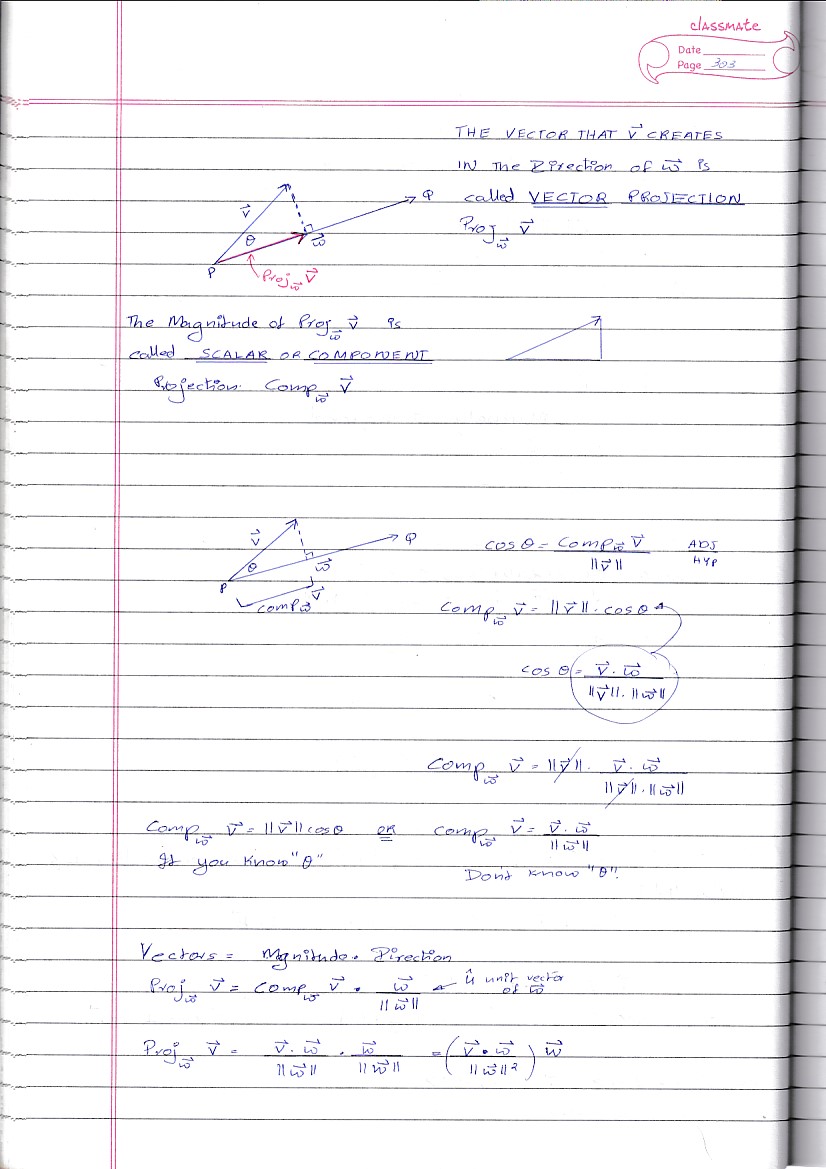 classmate
Date
Page 303
THE VECTOR THAT v⃗ CREATES
IN The Direction of w⃗ is
called VECTOR PROJECTION
Proj_w⃗ v⃗
v⃗ θ w⃗ P Q
Proj_w⃗ v⃗
The Magnitude of Proj_w⃗ v⃗ is
called SCALAR OR COMPONENT
Projection. Comp_w⃗ v⃗
v⃗ θ w⃗ P Q
comp_w⃗ v⃗
cos θ = Comp_w⃗ v⃗ / ||v⃗|| ADJ / HYP
Comp_w⃗ v⃗ = ||v⃗|| · cos θ
cos θ = v⃗ · w⃗ / ||v⃗|| · ||w⃗||
Comp_w⃗ v⃗ = ||v⃗|| · v⃗ · w⃗ / ||v⃗|| · ||w⃗||
Comp_w⃗ v⃗ = ||v⃗|| cos θ OR comp_w⃗ v⃗ = v⃗ · w⃗ / ||w⃗||
If you know "θ"
Don't know "θ".
Vectors = Mgnitude · Direction
Proj_w⃗ v⃗ = Comp_w⃗ v⃗ · w⃗ / ||w⃗|| û unit vector
of w⃗
Proj_w⃗ v⃗ = v⃗ · w⃗ / ||w⃗|| · w⃗ / ||w⃗|| = (v⃗ · w⃗ / ||w⃗||²) w⃗